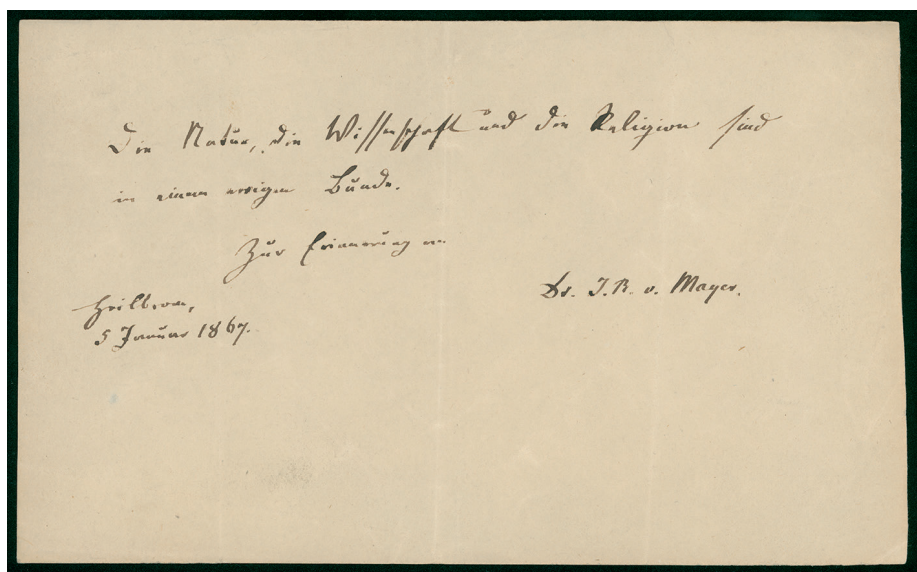 Die Natur, die Wissenschaft und die Religion sind
in einem ewigen Bunde.
Zur Erinnerung an
Dr. J. R. v. Mayer.
Heilbronn,
5 Januar 1867.